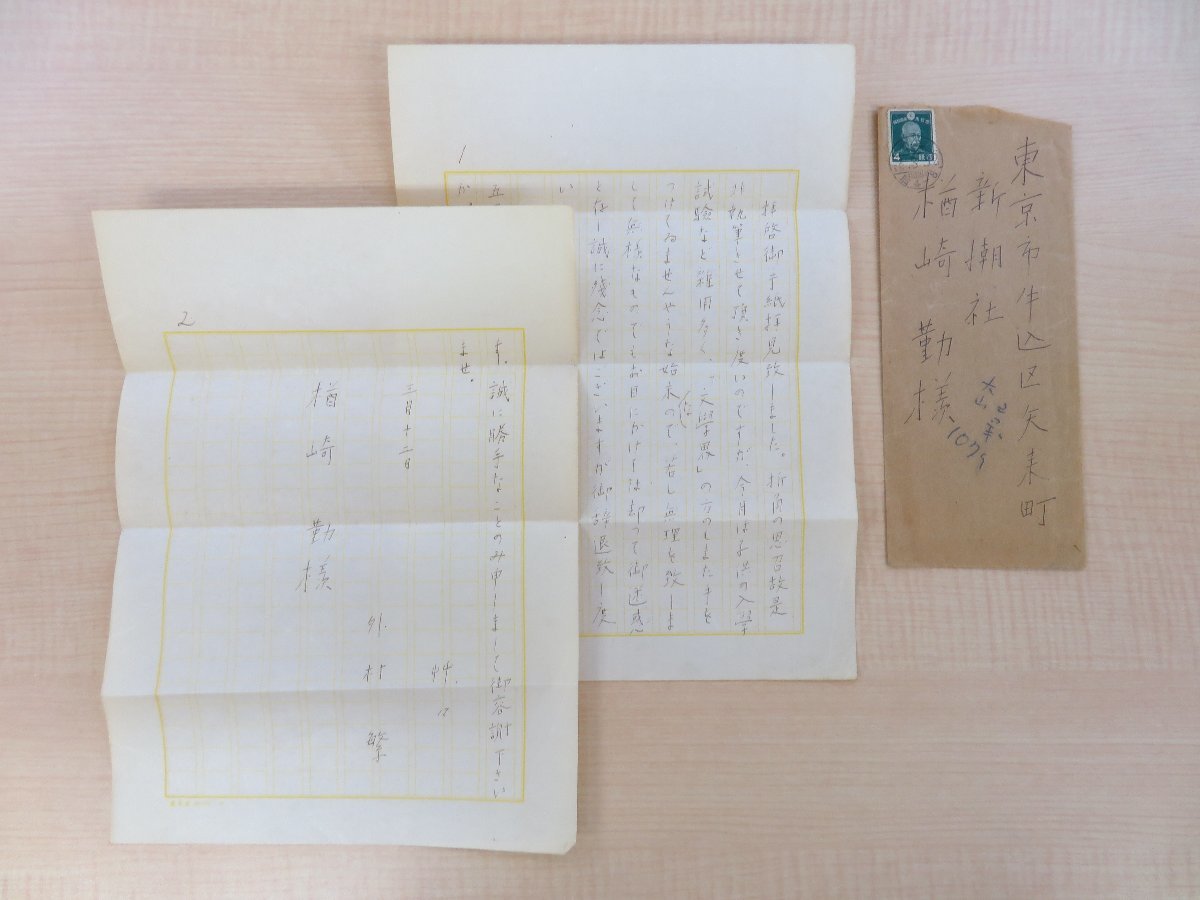 東京市牛込区矢来町
新潮社
楢崎勤様
4
1
拝啓御手紙拝見致しました。折角の思召故是
非執筆させて頂き度いのですが、今月は子供の入學
試驗など雜用多く、「文學界」の方のもまだ手を
つけてゐませんやうな始末ので、若し無理を致しま
して無様なものでもお目にかけては却つて御迷惑
となし誠に殘念ではございますが御辞退致し度
い
五
か
2
す、誠に勝手なことのみ申しまして御容謝下さい
ませ。
艸々
三月十二日
外村繁
楢崎勤様